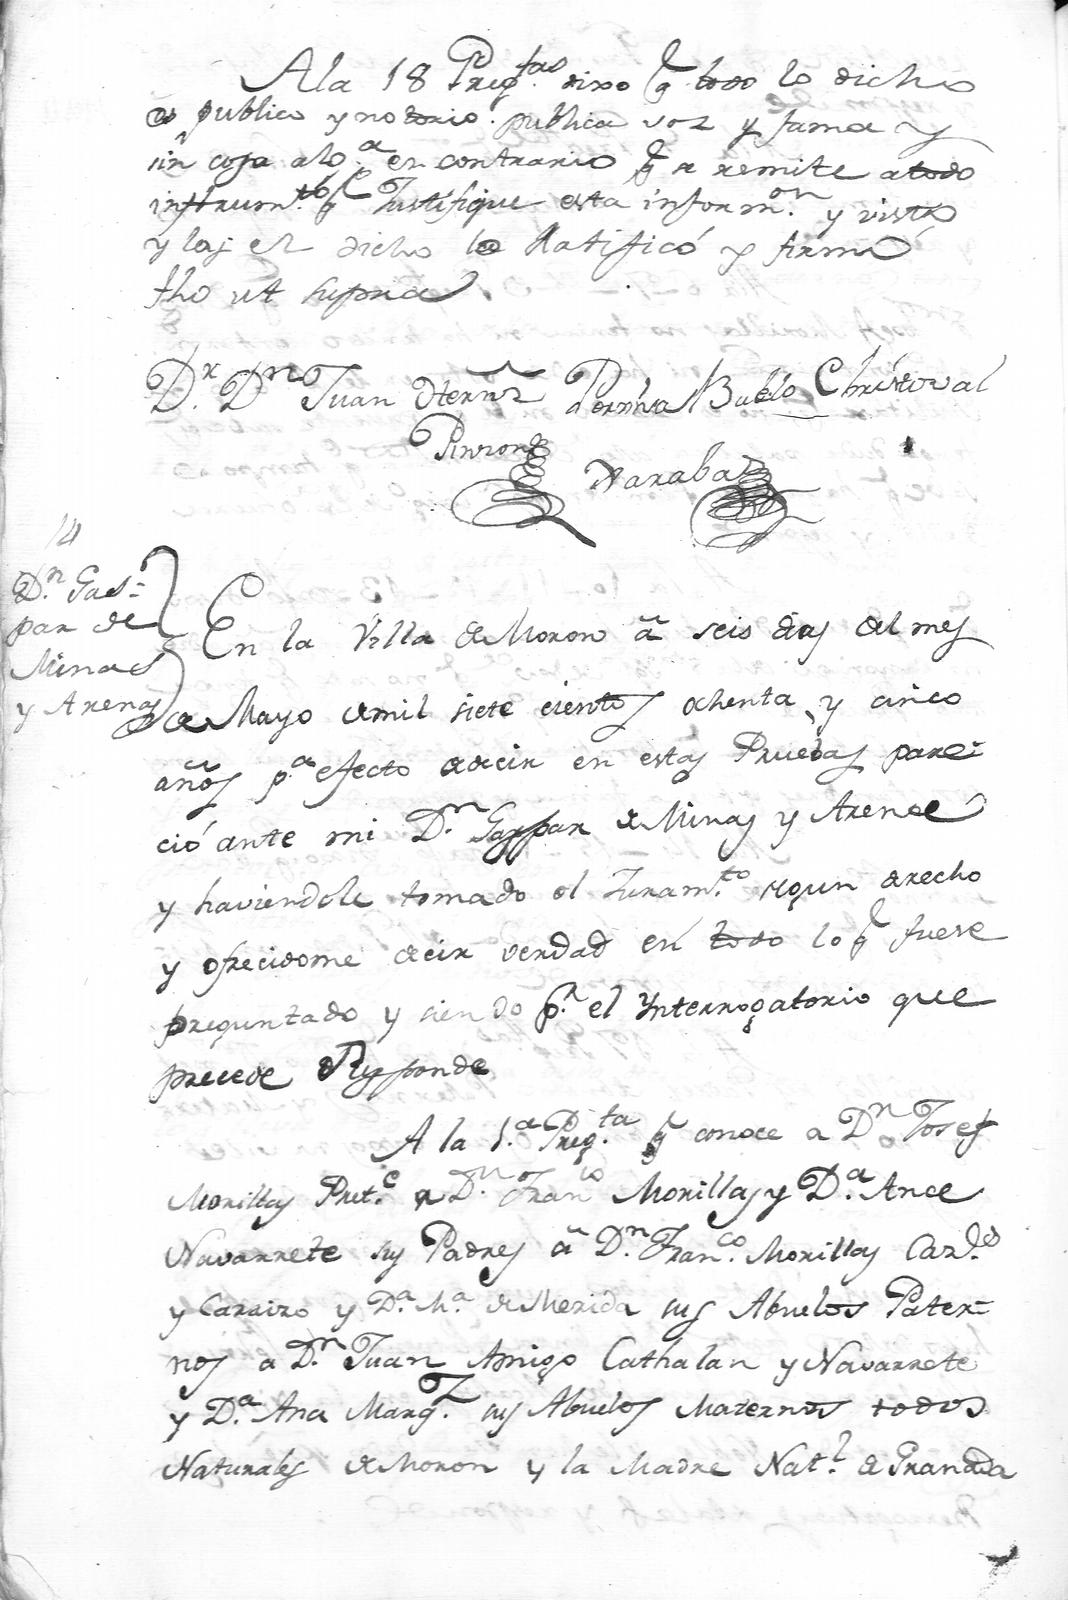 A la 18 Preg.tas dixo q.e todo lo dicho
es publico y notorio publica voz y fama y
sin cosa alg.a en contrario q.e se remite a todo
instrum.to q.e Justifique esta inform.on y visto
y ley el dicho lo Ratificó y firmó
fho ut supra
D.r D.n Juan Hern.z Pablo Christoval
Pinzon
Naraba
14
D.n Gas-
par de
Minas
y Arenas
En la Villa de Moron â seis dias del mes
de Mayo de mil siete cientos ochenta y cinco
años p.a efecto de decir en estas Pruebas pare-
ció ante mi D.n Gaspar de Minas y Arenas
y haviendole tomado el Juram.to segun derecho
y ofrecidome decir verdad en todo lo q.e fuere
preguntado y siendo p.r el Ynterrogatorio que
precede Responde
A la 1.a Preg.ta q.e conoce a D.n Josef
Morillas Pret.e a D.n Fran.co Morillas y D.a Ana
Navarrete sus Padres â D.n Fran.co Morillas
y Carairo y D.a M.a de Merida sus Abuelos Pater-
nos a D.n Juan Amigo Cathalan y Navarrete
y D.a Ana Marq.z sus Abuelos Maternos todos
Naturales de Moron y la Madre Nat.l de Granada